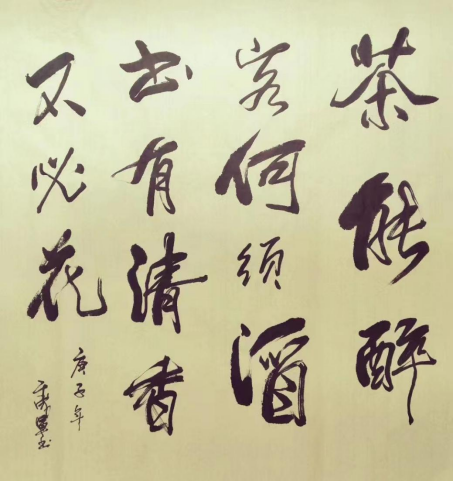 茶能醉
客何须酒
书有清香
不必花
庚子年